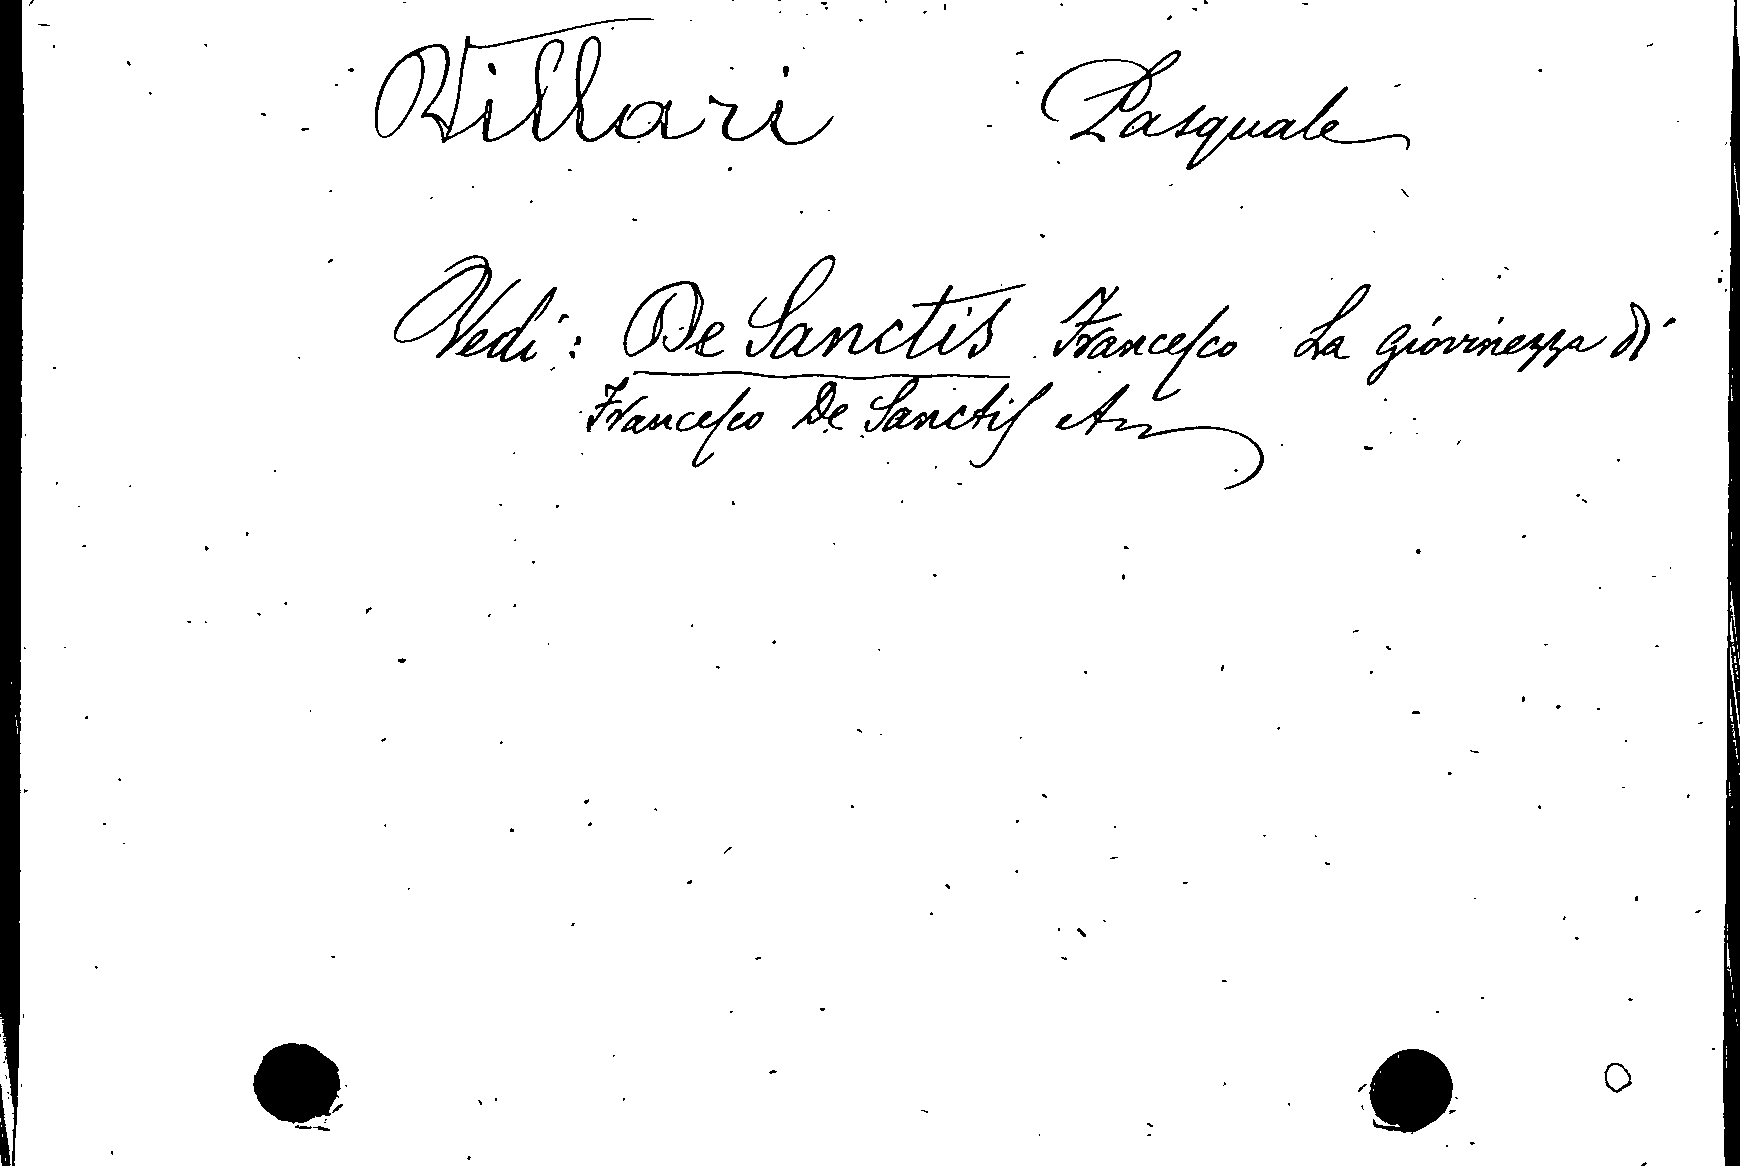 Villari Pasquale
Vedi: De Sanctis Francesco La giovinezza di
Francesco De Sanctis